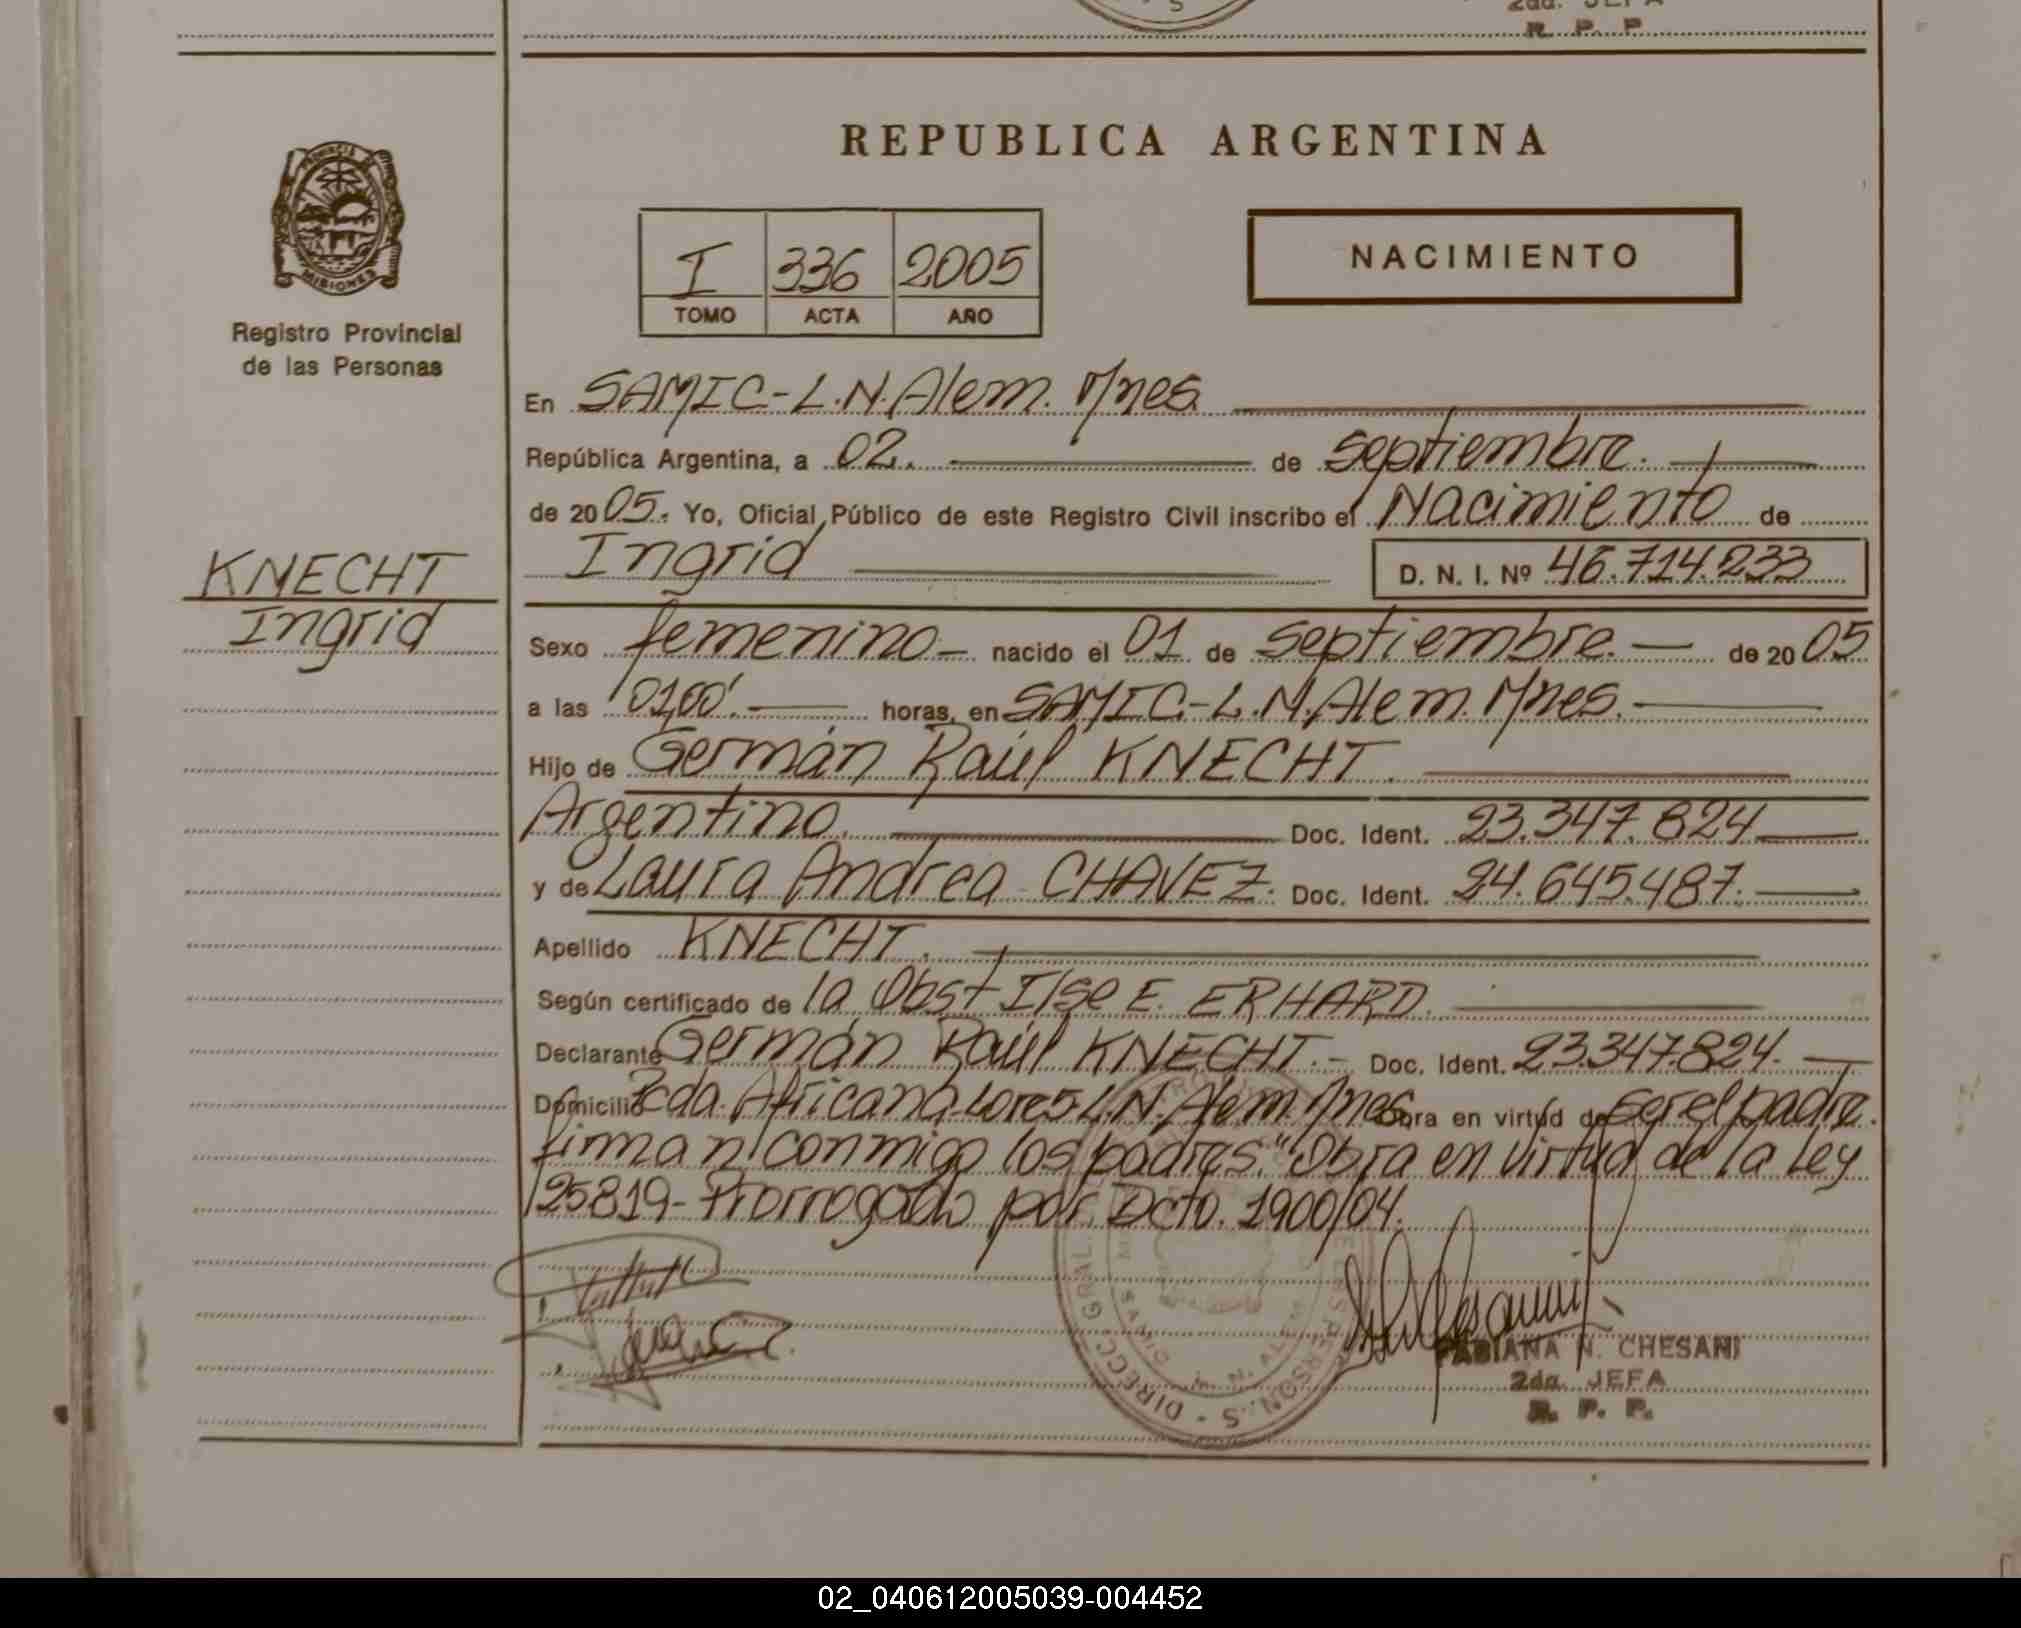 2da. JEFA
R. P. P.
REPUBLICA ARGENTINA
PROVINCIA DE
MISIONES
Registro Provincial
de las Personas
I 336 2005
TOMO ACTA AÑO
NACIMIENTO
En SAMIC-L.N.Alem. Mnes.
República Argentina, a 02. de septiembre.
de 2005. Yo, Oficial Público de este Registro Civil inscribo el Nacimiento de
Ingrid D. N. I. Nº 46.714.233
KNECHT
Ingrid
Sexo femenino nacido el 01 de septiembre. de 2005
a las 01,00'. horas, en SAMIC.-L.N.Alem. Mnes.
Hijo de Germán Raúl KNECHT.
Argentino. Doc. Ident. 23.347.824
y de Laura Andrea CHAVEZ. Doc. Ident. 24.645.487.
Apellido KNECHT.
Según certificado de la Obst Ilse E. ERHARD.
Declarante Germán Raúl KNECHT.- Doc. Ident. 23.347.824.
Domicilio Pcda. Africana-Lore5 L.N. Alem. Mnes. Obra en virtud de ser el padre.
firman conmigo los padres. "Obra en virtud de la Ley
25819- Prorrogado por Dcto. 1900/04.
FABIANA N. CHESANI
2da. JEFA
R. P. P.
02_040612005039-004452